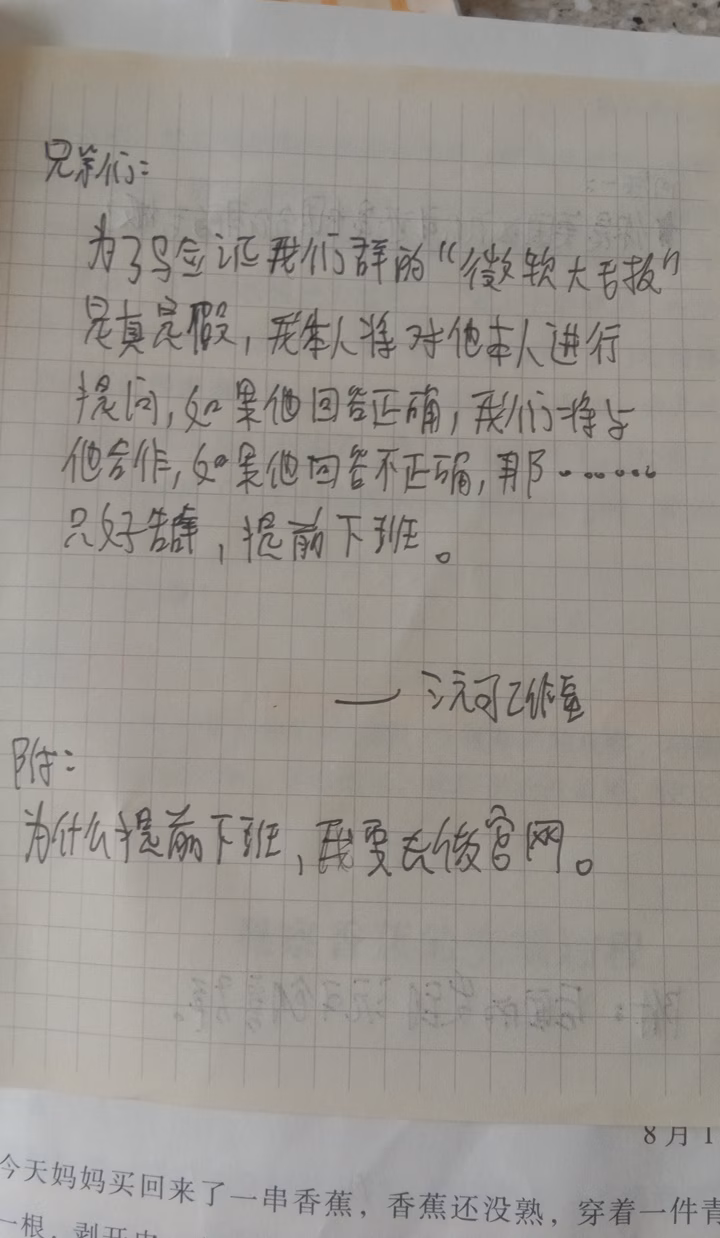 兄弟们:
为了验证我们群的“微软大老板”
是真是假,我本人将对他本人进行
提问,如果他回答正确,我们将与
他合作,如果他回答不正确,那……
只好告辞,提前下班。
附:
为什么提前下班,我要去做官网。
8月1
今天妈妈买回来了一串香蕉,香蕉还没熟,穿着一件青
一根,剥开皮